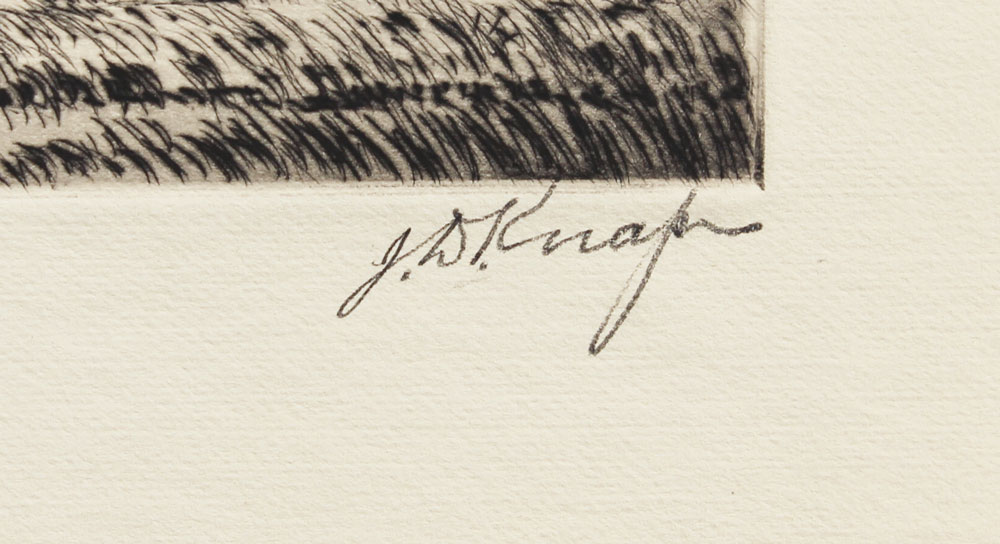 J.D. Knap